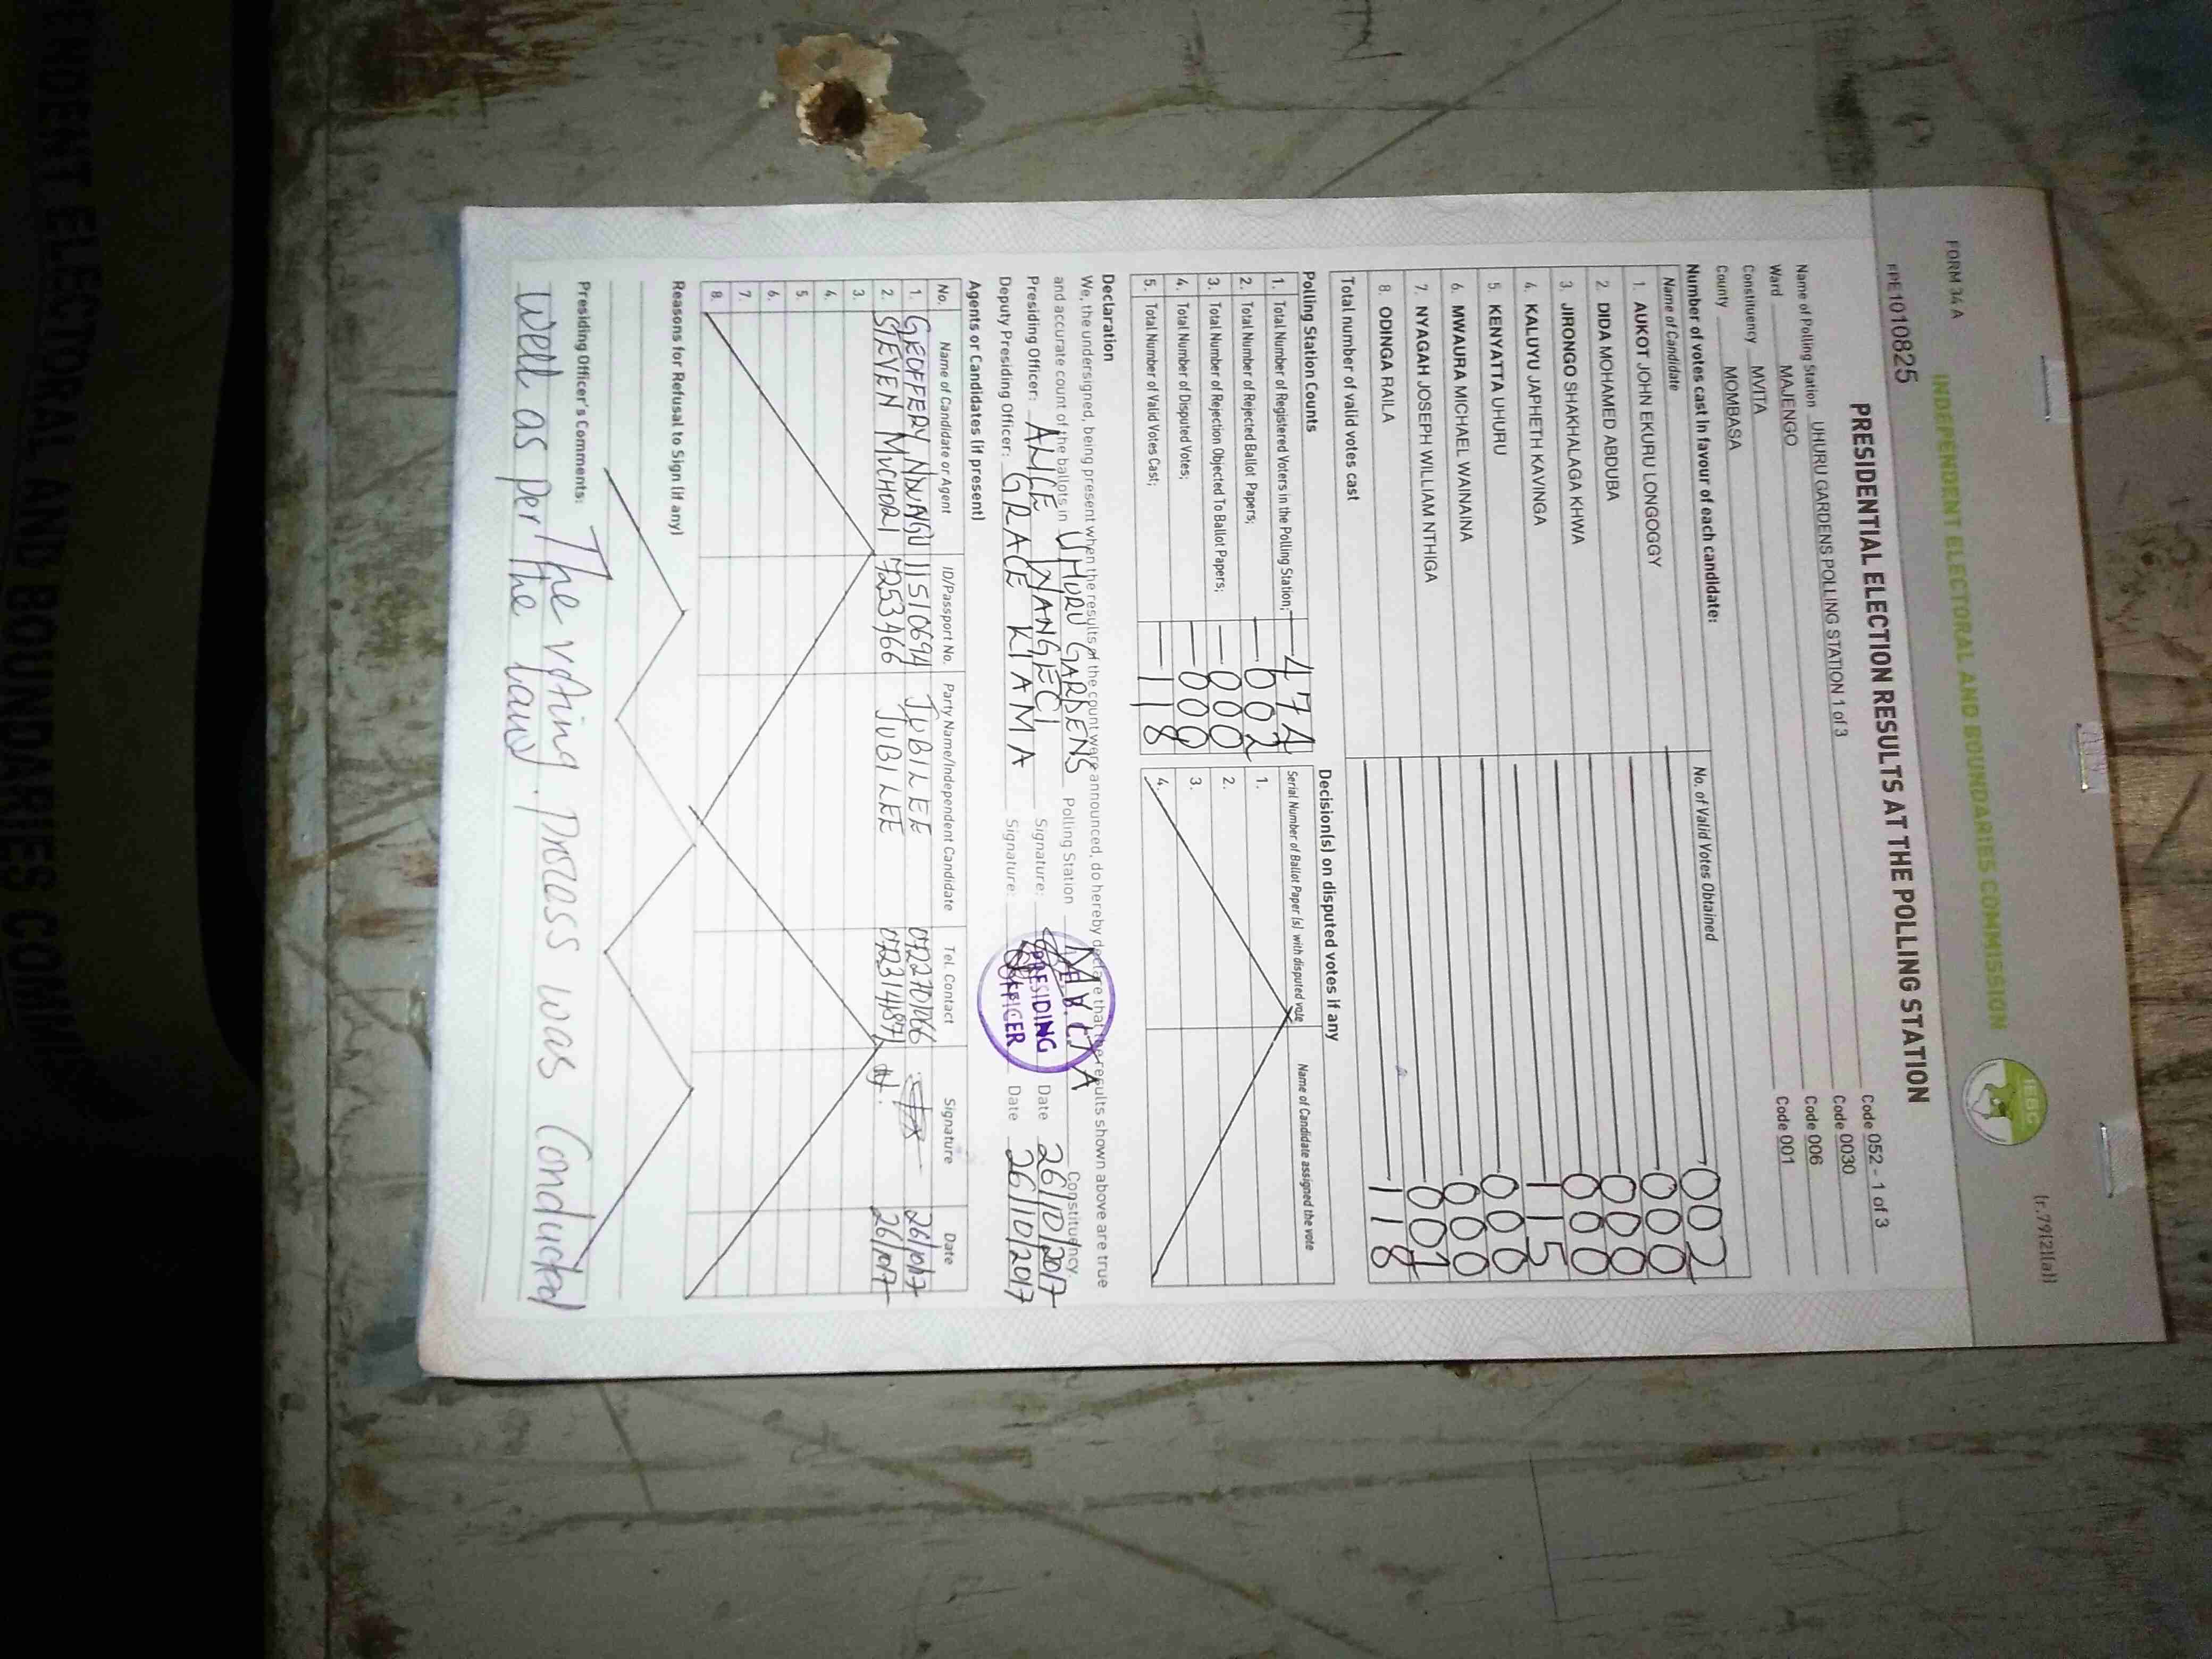 (r.79(2)(a))
FORM 34 A
INDEPENDENT ELECTORAL AND BOUNDARIES COMMISSION
IEBC
FPE1010825
PRESIDENTIAL ELECTION RESULTS AT THE POLLING STATION
Name of Polling Station UHURU GARDENS POLLING STATION 1 of 3 Code 052 - 1 of 3
Ward MAJENGO Code 0030
Constituency MVITA Code 006
County MOMBASA Code 001
Number of votes cast in favour of each candidate:
Name of Candidate No. of Valid Votes Obtained
1. AUKOT JOHN EKURU LONGOGGY 002
2. DIDA MOHAMED ABDUBA 000
3. JIRONGO SHAKHALAGA KHWA 000
4. KALUYU JAPHETH KAVINGA 000
5. KENYATTA UHURU 115
6. MWAURA MICHAEL WAINAINA 000
7. NYAGAH JOSEPH WILLIAM NTHIGA 000
8. ODINGA RAILA 001
Total number of valid votes cast 118
Polling Station Counts
1. Total Number of Registered Voters in the Polling Station; 474
2. Total Number of Rejected Ballot Papers; 002
3. Total Number of Rejection Objected To Ballot Papers; 000
4. Total Number of Disputed Votes; 000
5. Total Number of Valid Votes Cast; 118
Decision(s) on disputed votes if any
Serial Number of Ballot Paper (s) with disputed vote Name of Candidate assigned the vote
1.
2.
3.
4.
Declaration
We, the undersigned, being present when the results of the count were announced, do hereby declare that the results shown above are true
and accurate count of the ballots in UHURU GARDENS Polling Station MVITA Constituency.
Presiding Officer: ALICE WANGECI Signature: Date 26/10/2017
Deputy Presiding Officer: GRACE KIAMA Signature: Date 26/10/2017
PRESIDING
OFFICER
Agents or Candidates (if present)
No. Name of Candidate or Agent ID/Passport No. Party Name/Independent Candidate Tel. Contact Signature Date
1. GEOFFERY 11510694 JUBILEE 0722701066 26/10/17
2. STEVEN MUCHORI 7253466 JUBILEE 26/10/17
3.
4.
5.
6.
7.
8.
Reasons for Refusal to Sign (if any)
Presiding Officer's Comments: The voting process was Conducted
well as per the Law.
INDEPENDENT ELECTORAL AND BOUNDARIES